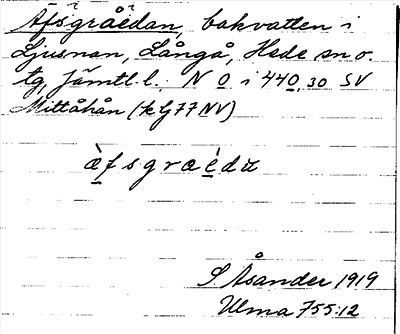 Äfsgråedan, bakvatten i
Ljusnan, Långå, Hede sn o.
tg, Jämtl. l., N O i 440,30 SV
Mittåhån (k lj 77 NV)
æ̀fsgraédu
S Åsander 1919
Ulma 755:12